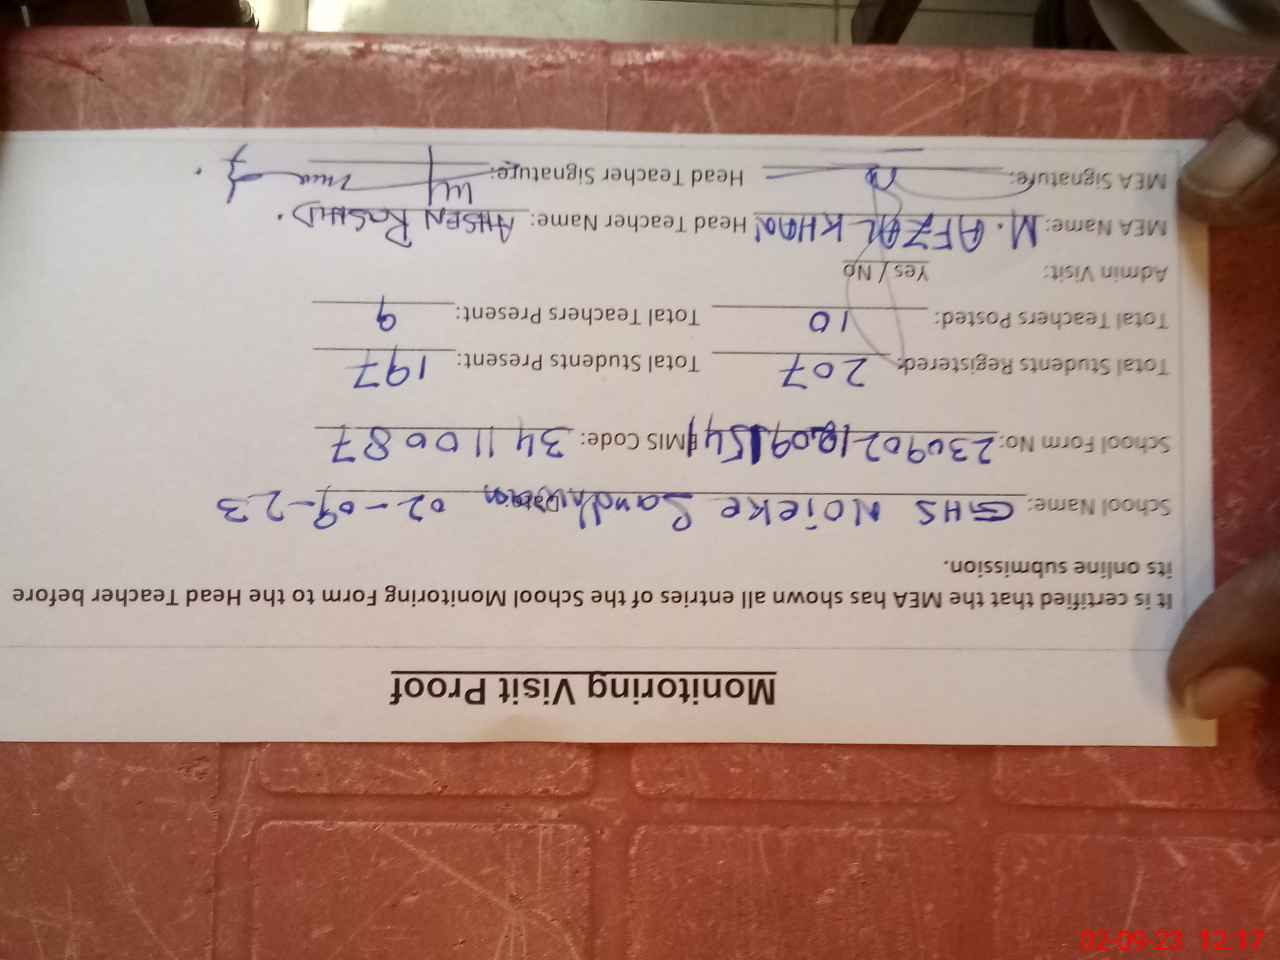 Monitoring Visit Proof
It is certified that the MEA has shown all entries of the School Monitoring Form to the Head Teacher before
its online submission.
School Name: GHS NOIEKE Sandhwan Date: 02-09-23
School Form No: EMIS Code: 34110087
Total Students Registered: 207 Total Students Present: 197
Total Teachers Posted: 10 Total Teachers Present: 9
Admin Visit: Yes / No
MEA Name: M. AFZAL KHAN Head Teacher Name: AHSEN RASHID.
MEA Signature: Head Teacher Signature:
02-09-23 12:17